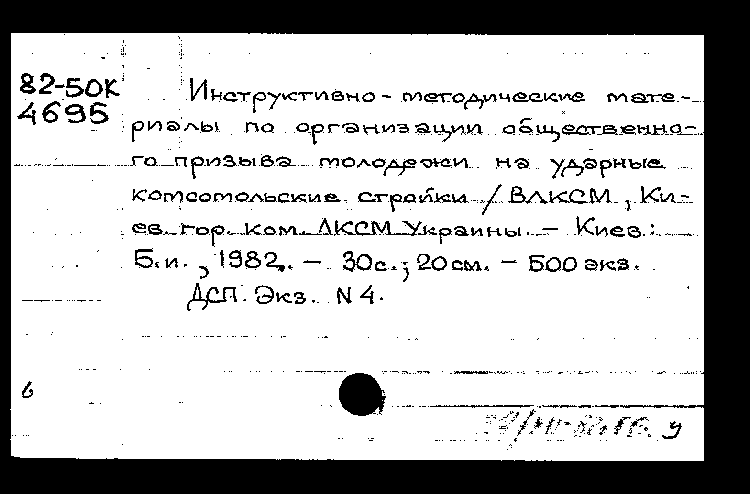 82-50К
4695
Инструктивно-методические мате-
риалы по организации общественно-
го призыва молодежи на ударные
комсомольские стройки / ВЛКСМ, Ки-
ев. гор. ком. ЛКСМ Украины. — Киев:
Б.и., 1982. — 30с.; 20см. — 500 экз.
ДСП. Экз. N4.
6
у